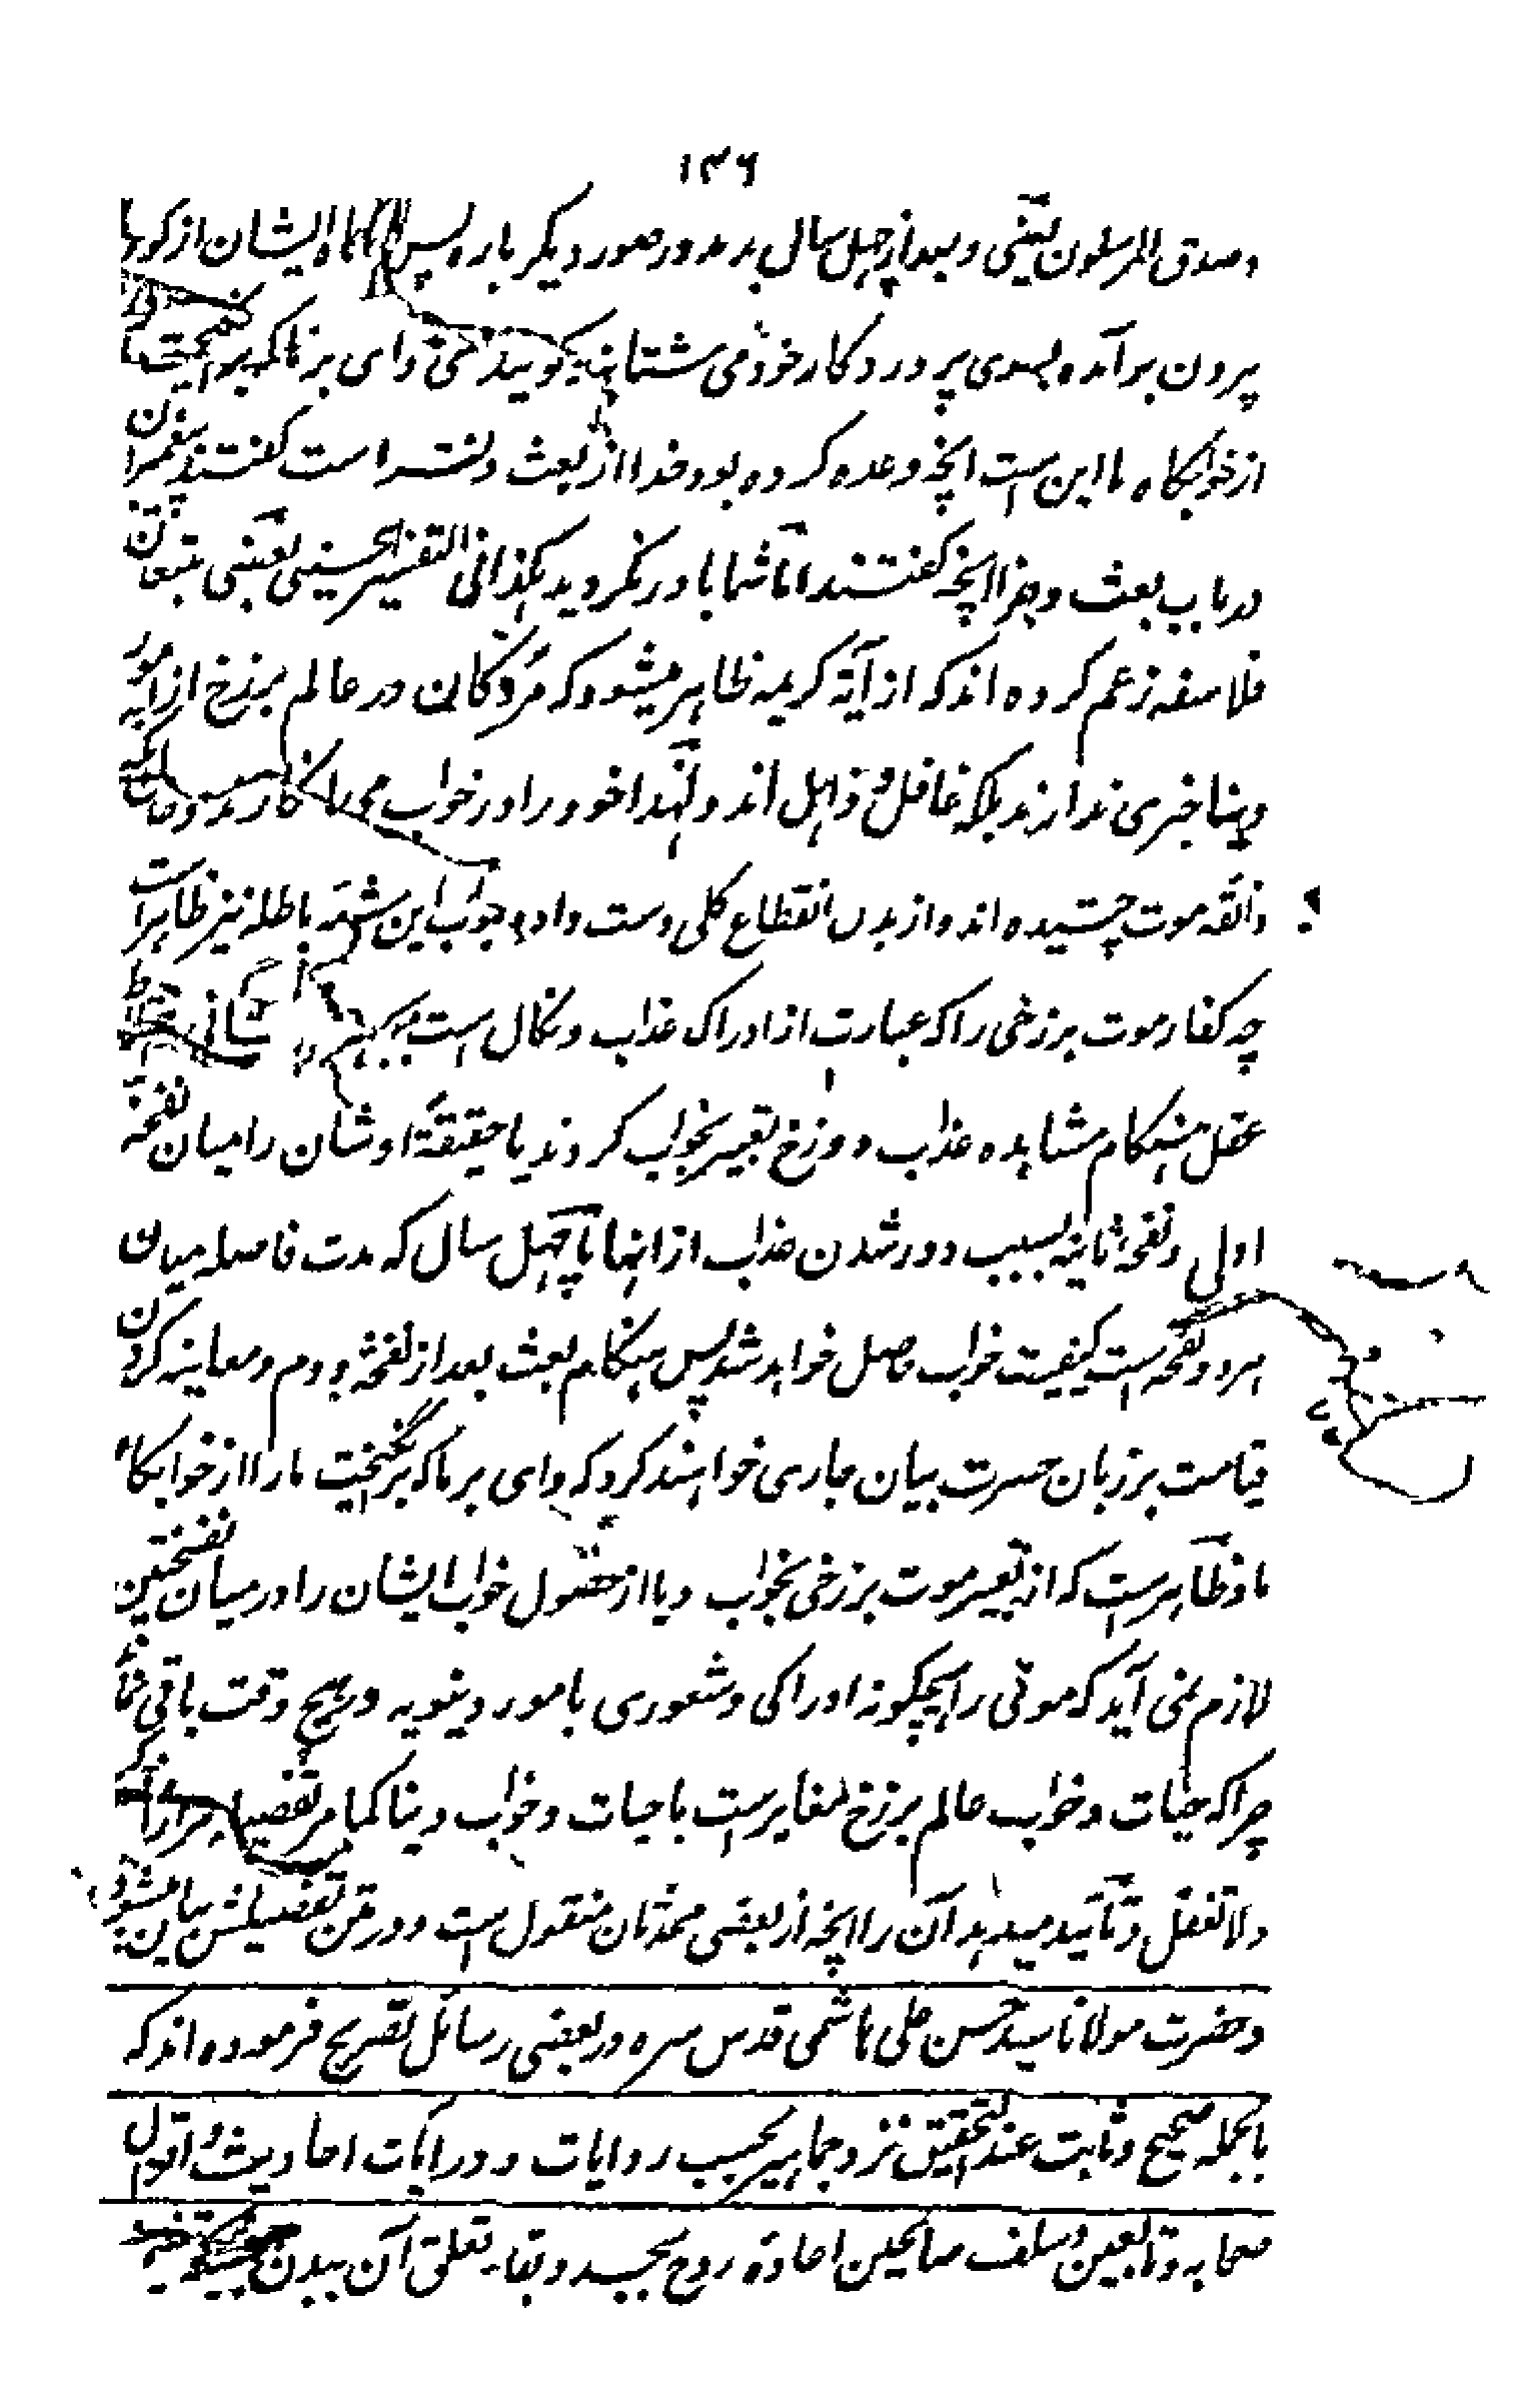 ۱۳۶
و صدق المرسلون یعنی و بعد از چهل سال بدمد در صور دیگر بار پس ایشان از گورها
بیرون برآمده بسوی پروردگار خود می شتابند گویند ای وای بر ما که برانگیخت ما را
از خوابگاه ما این است آنچه وعده کرده بود خدا از بعث و نشر راست گفتند پیغمبران
در باب بعث و جزا آنچه گفتند اما شما باور نکردید هکذا فی التفسیر الحسینی یعنی متبعان
فلاسفه زعم کرده اند که از آیهٔ کریمه ظاهر میشود که مردگان در عالم برزخ از امور
دنیا خبری ندارند بلکه غافل و ذاهل اند و لهذا خود را در خواب می انگارند و حالآنکه
ذائقه موت چشیده اند و از بدن انقطاع کلی دست داده جواب این شبهه باطله نیز ظاهر است
چه کفار موت برزخی را که عبارت از ادراک عذاب و نکال است
عقل هنگام مشاهده عذاب دوزخ تعبیر بخواب کردند یا حقیقةً اوشان را میان نفخه
اولی و نفخه ثانیه بسبب دور شدن عذاب از انها تا چهل سال که مدت فاصله میان
هر دو نفخه است کیفیت خواب حاصل خواهد شد پس هنگام بعث بعد از نفخه دوم و معاینه کردن
قیامت بر زبان حسرت بیان جاری خواهند کرد که وای بر ما که برانگیخت ما را از خوابگاه
ما و ظاهرست که از تعبیر موت برزخی بخواب و یا از حصول خواب ایشان را در میان نفختین
لازم نمی آید که موتی را هیچگونه ادراکی و شعوری بامور دنیویه در هیچ وقت باقی نماند
چرا که حیات و خواب عالم برزخ مغایرست با حیات و خواب دنیا کما مر تفصیله مراراً
و لا تغفل و تائید میدهد آن را آنچه از بعضی محدثان منقول است و در متن تفصیلش بیان میشود
و حضرت مولانا سید حسن علی هاشمی قدس سره در بعضی رسائل تصریح فرموده اند که
بالجمله صحیح و ثابت عند التحقیق نزد جماهیر بحسب روایات و درایات احادیث و اقوال
صحابه و تابعین و سلف صالحین اعادهٔ روح بجسد و بقاء تعلق آن ببدن